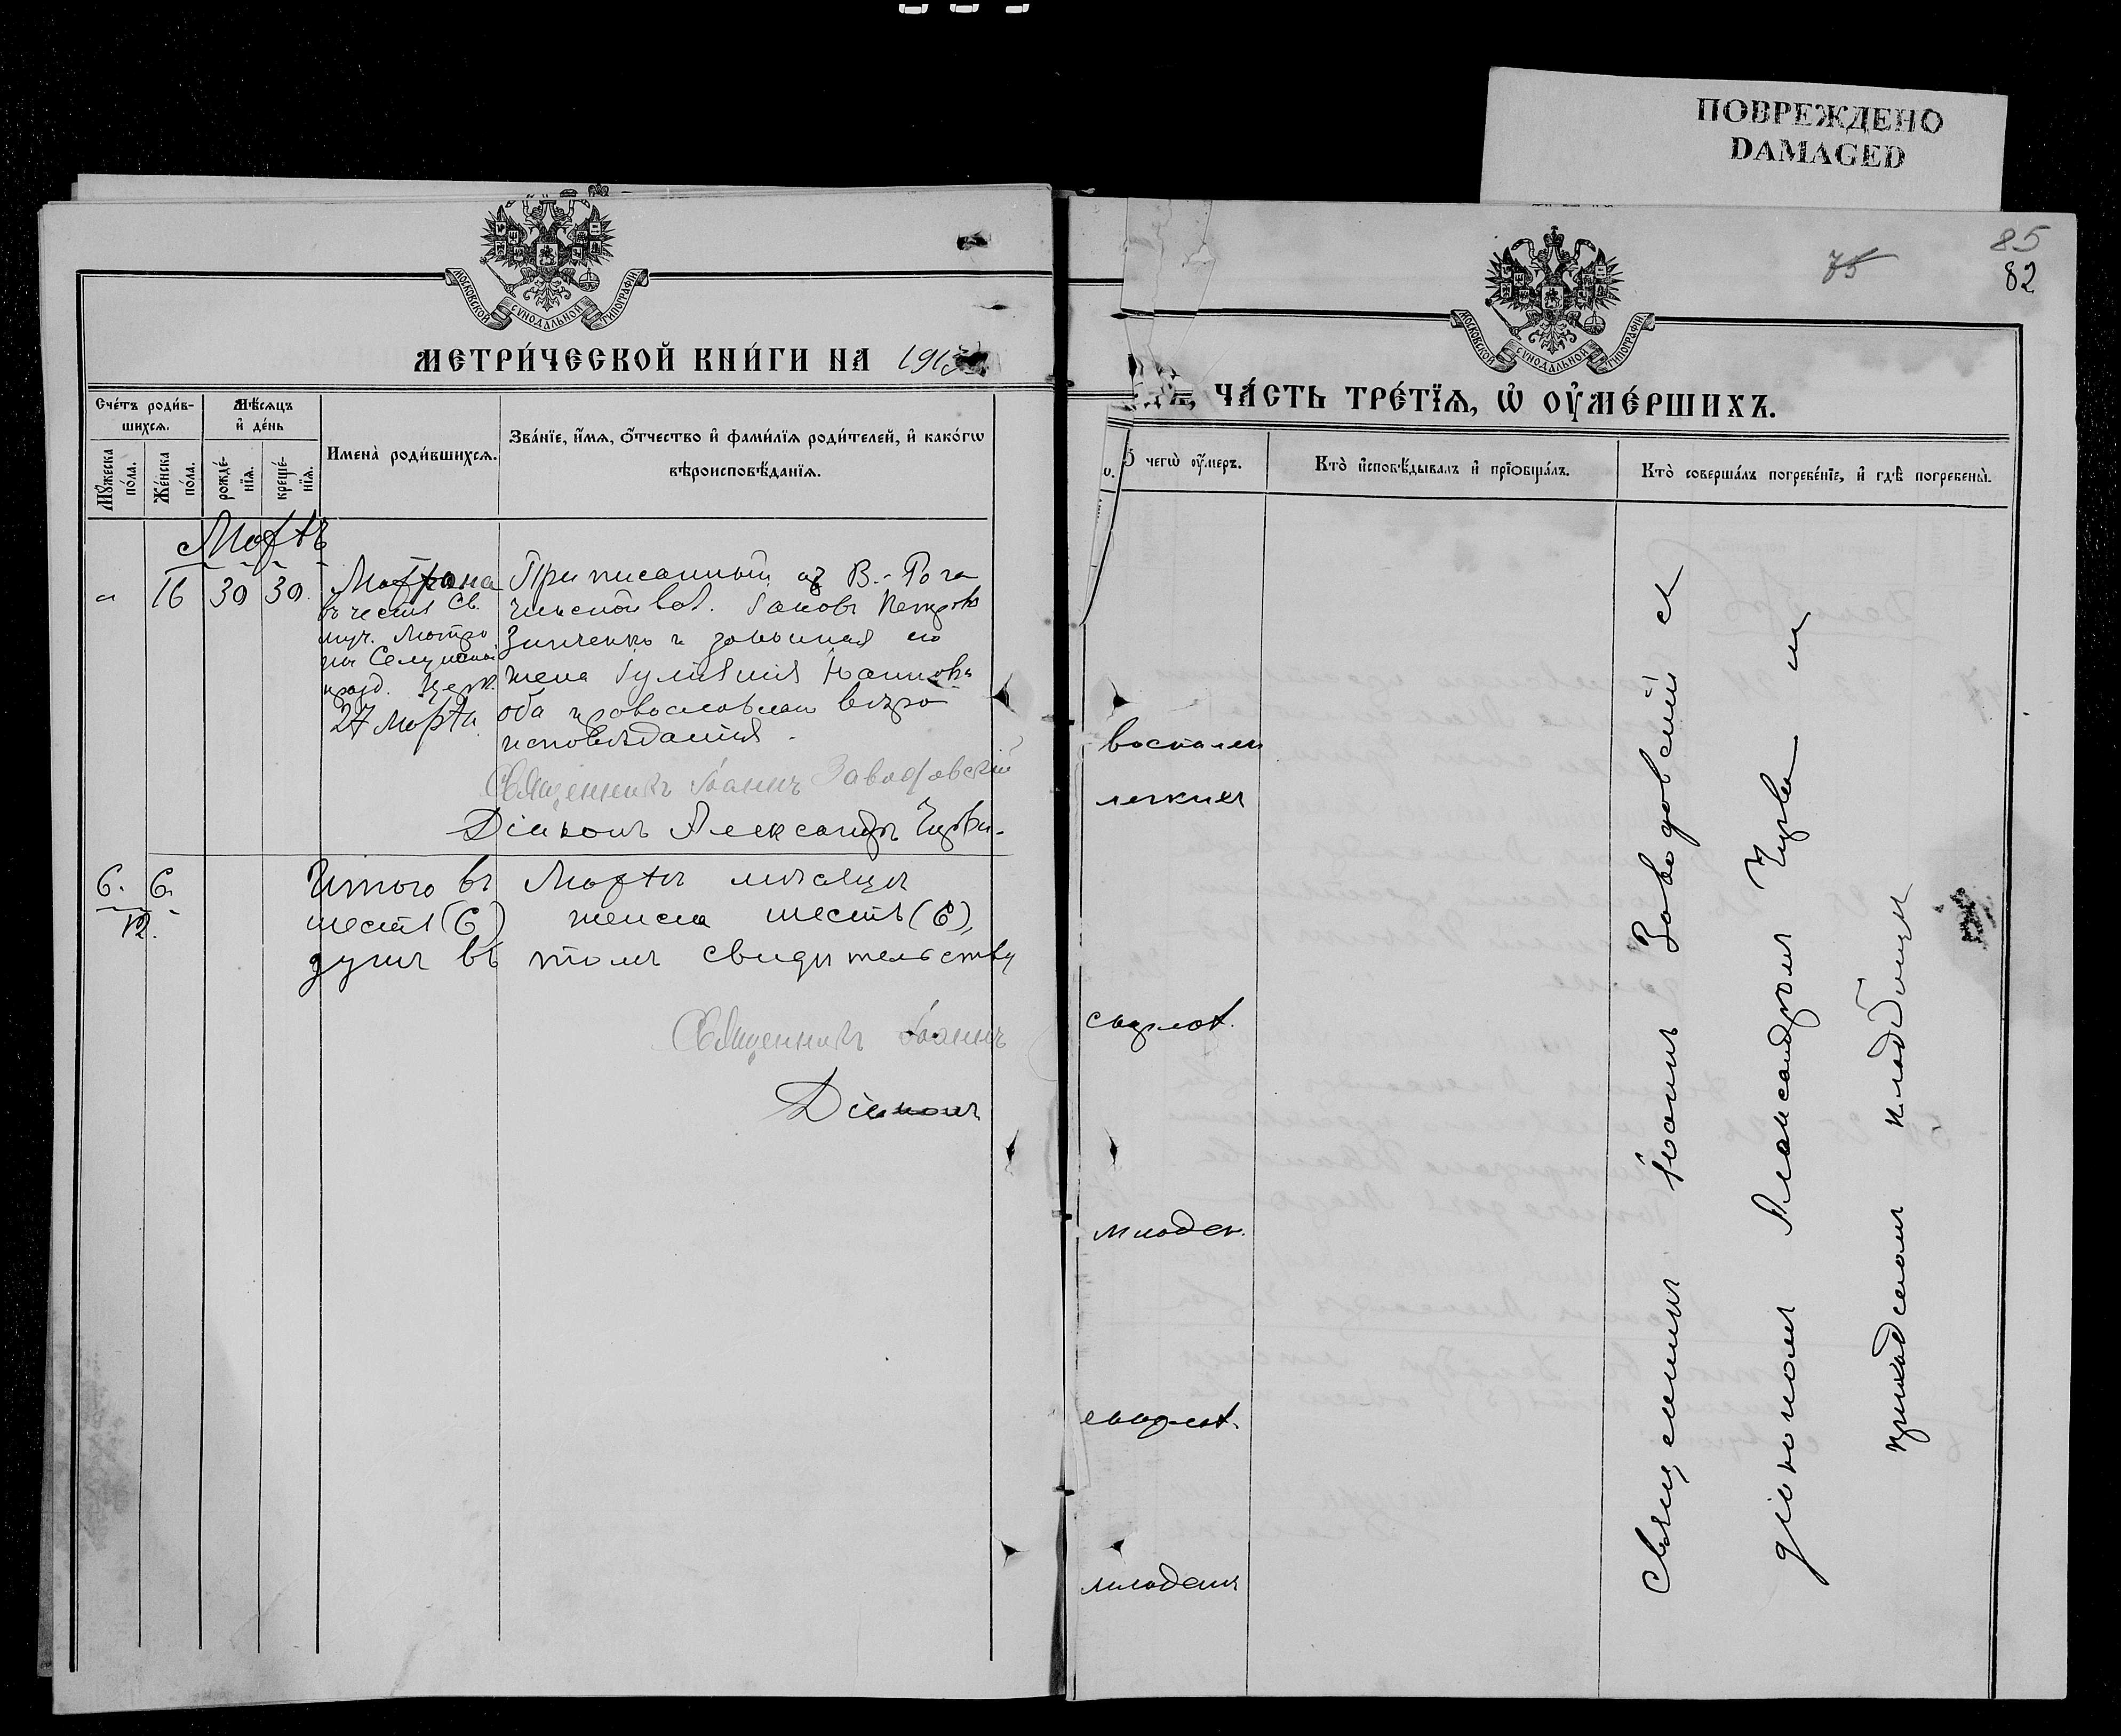 ПОВРЕЖДЕНО
DAMAGED
МОСКОВСКОЙ СѴНОДАЛЬНОЙ ТИПОГРАФІИ
МЕТРИ́ЧЕСКОЙ КНИ́ГИ НА 1913
Сче́тъ роди́в-
шихсѧ.
Мѣ́сѧцъ
и҆ де́нь
Мꙋ́жеска
по́ла.
Же́нска
по́ла.
рожде́-
нїѧ.
креще́-
нїѧ.
Имена̀ роди́вшихсѧ.
Зва́нїе, и҆́мѧ, ѻ҆́тчество и҆ фами́лїѧ роди́телей, и҆ како́гѡ
вѣроисповѣ́данїѧ.
Мартъ
" 16 30 30
Матрона
въ честь Св.
муч. Матро
ны Селунской
празд. церк.
27 Марта
Приписанный изъ В.-Рога
чинской вол. Іаковъ Петровъ
Зинченко и законная его
жена Іуліанія Іоаннова
оба православнаго вѣро
исповѣданія.
Священникъ Іоаннъ Заводовскій
Діаконъ Александръ Чирва
6. 6.
12.
Итого въ Мартѣ мѣсяцѣ
шесть (6) женска шесть (6),
душъ въ томъ свидѣтельству
Священникъ Іоаннъ
Діаконъ
75
85
82
МОСКОВСКОЙ СѴНОДАЛЬНОЙ ТИПОГРАФІИ
ЧА́СТЬ ТРЕ́ТЇѦ, Ѡ҆ ОУ҆МЕ́РШИХЪ.
чегѡ̀ оу҆́меръ.
Кто̀ и҆сповѣ́дывалъ и҆ прїѡбща́лъ.
Кто̀ соверша́лъ погребе́нїе, и҆ гдѣ̀ погребены̀.
воспален
легкихъ
скарлат.
младен.
скарлат.
младенч
Священникъ Іоаннъ Заводовскій съ
діакономъ Александромъ Чирва на
приходскомъ кладбищѣ